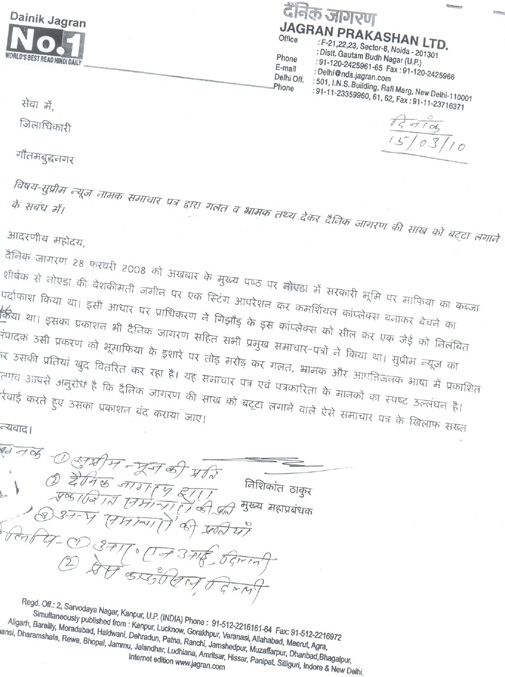 Dainik Jagran
No.1
WORLD'S BEST READ HINDI DAILY
दैनिक जागरण
JAGRAN PRAKASHAN LTD.
Office : F-21,22,23, Sector-8, Noida - 201301
: Distt. Gautam Budh Nagar (U.P.)
Phone : 91-120-2425961-65 Fax : 91-120-2425966
E-mail : Delhi@nda.jagran.com
Delhi Off. : 501, I.N.S. Building, Rafi Marg, New Delhi-110001
Phone : 91-11-23359960, 61, 62, Fax : 91-11-23716371
दिनांक
15/03/10
सेवा में,
जिलाधिकारी
गौतमबुद्धनगर
विषय-सुप्रीम न्यूज नामक समाचार पत्र द्वारा गलत व भ्रामक तथ्य देकर दैनिक जागरण की साख को बट्टा लगाने
के संबंध में।
आदरणीय महोदय,
दैनिक जागरण 28 फरवरी 2008 को अखबार के मुख्य पष्ठ पर नोएडा में सरकारी भूमि पर माफिया का कब्जा
शीर्षक से नोएडा की बेशकीमती जमीन पर एक स्टिंग आपरेशन कर कमर्शियल कांप्लेक्स बनाकर बेचने का
पर्दाफाश किया था। इसी आधार पर प्राधिकरण ने गिझौड़ के इस कांप्लेक्स को सील कर एक जेई को निलंबित
किया था। इसका प्रकाशन भी दैनिक जागरण सहित सभी प्रमुख समाचार-पत्रों ने किया था। सुप्रीम न्यूज का
संपादक उसी प्रकरण को भूमाफिया के इशारे पर तोड़ मरोड़ कर गलत, भ्रामक और आपत्तिजनक भाषा में प्रकाशित
कर उसकी प्रतियां खुद वितरित कर रहा है। यह समाचार पत्र एवं पत्रकारिता के मानकों का स्पष्ट उल्लंघन है।
आपसे अनुरोध है कि दैनिक जागरण की साख को बट्टा लगाने वाले ऐसे समाचार पत्र के खिलाफ सख्त
र्रवाई करते हुए उसका प्रकाशन बंद कराया जाए।
न्यवाद।
① सुप्रीम न्यूज की प्रति
② दैनिक जागरण द्वारा
प्रकाशित समाचारों की प्रति
③ अन्य समाचारों की प्रतियाँ
निशिकांत ठाकुर
मुख्य महाप्रबंधक
① आर. एन आई, दिल्ली
② प्रेस काउंसिल, दिल्ली
Regd. Off.: 2, Sarvodaya Nagar, Kanpur, U.P. (INDIA) Phone : 91-512-2216161-64 Fax: 91-512-2216972
Simultaneously published from : Kanpur, Lucknow, Gorakhpur, Varanasi, Allahabad, Meerut, Agra,
Aligarh, Bareilly, Moradabad, Haldwani, Dehradun, Patna, Ranchi, Jamshedpur, Muzaffarpur, Dhanbad, Bhagalpur,
hansi, Dharamshala, Rewa, Bhopal, Jammu, Jalandhar, Ludhiana, Amritsar, Hissar, Panipat, Silliguri, Indore & New Delhi.
Internet edition www.jagran.com